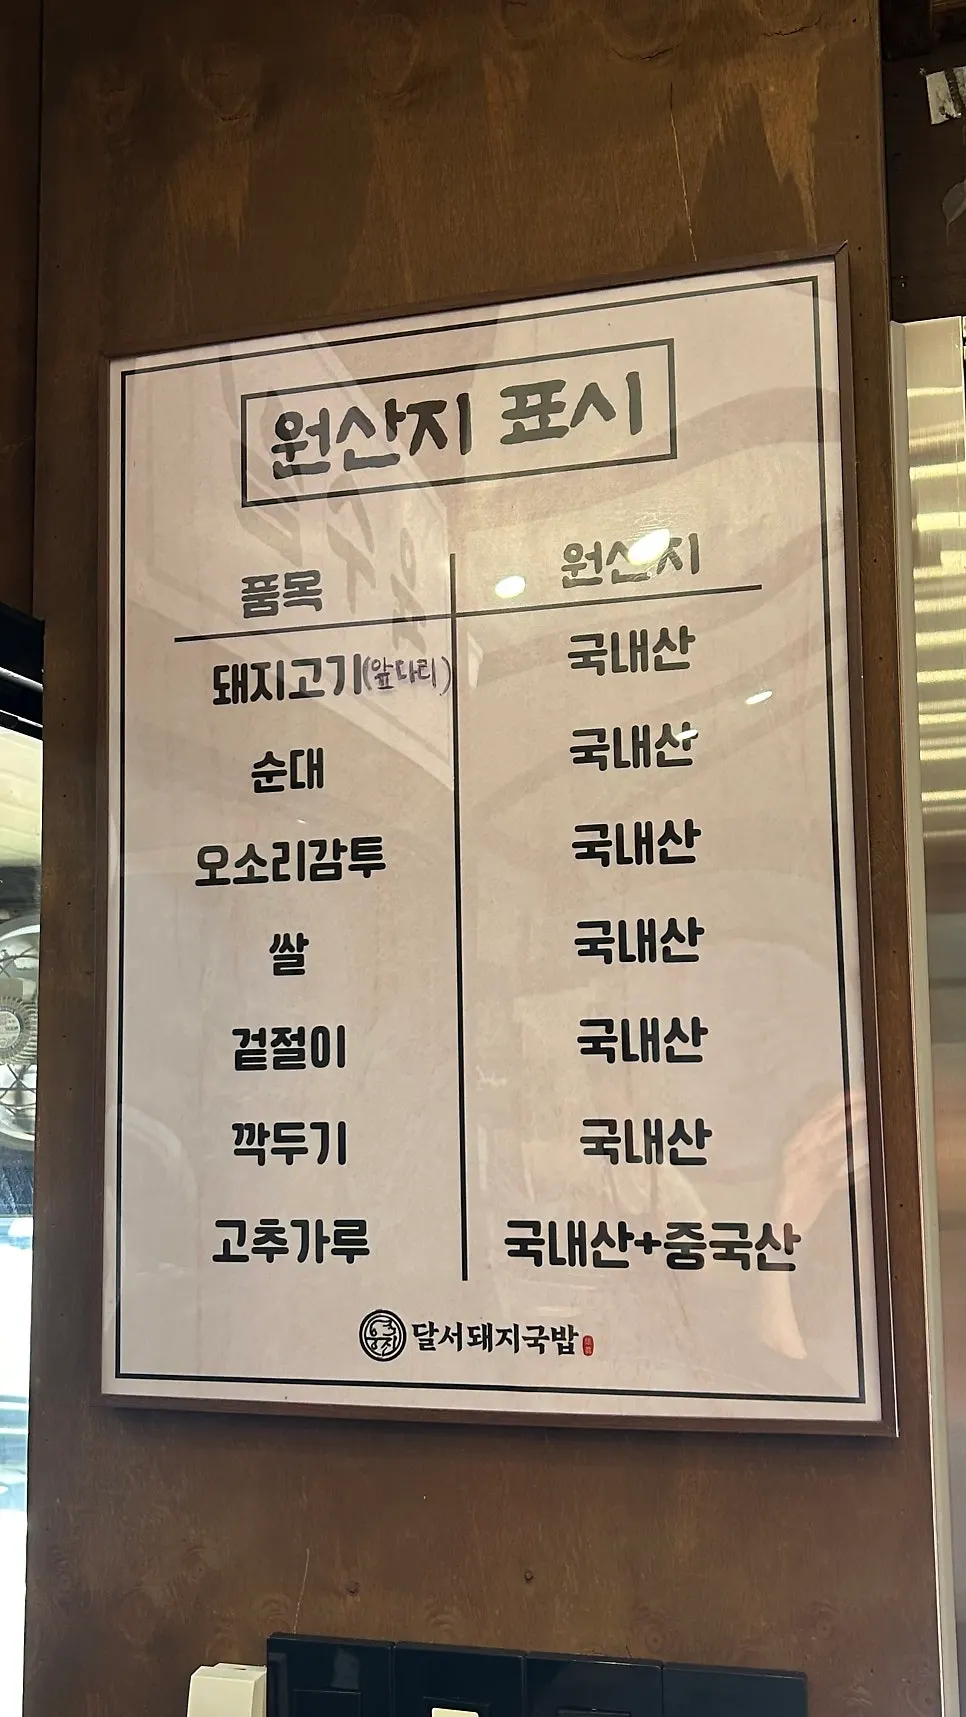 원산지 표시
품목 원산지
돼지고기(앞다리) 국내산
순대 국내산
오소리감투 국내산
쌀 국내산
겉절이 국내산
깍두기 국내산
고추가루 국내산+중국산
달서돼지국밥